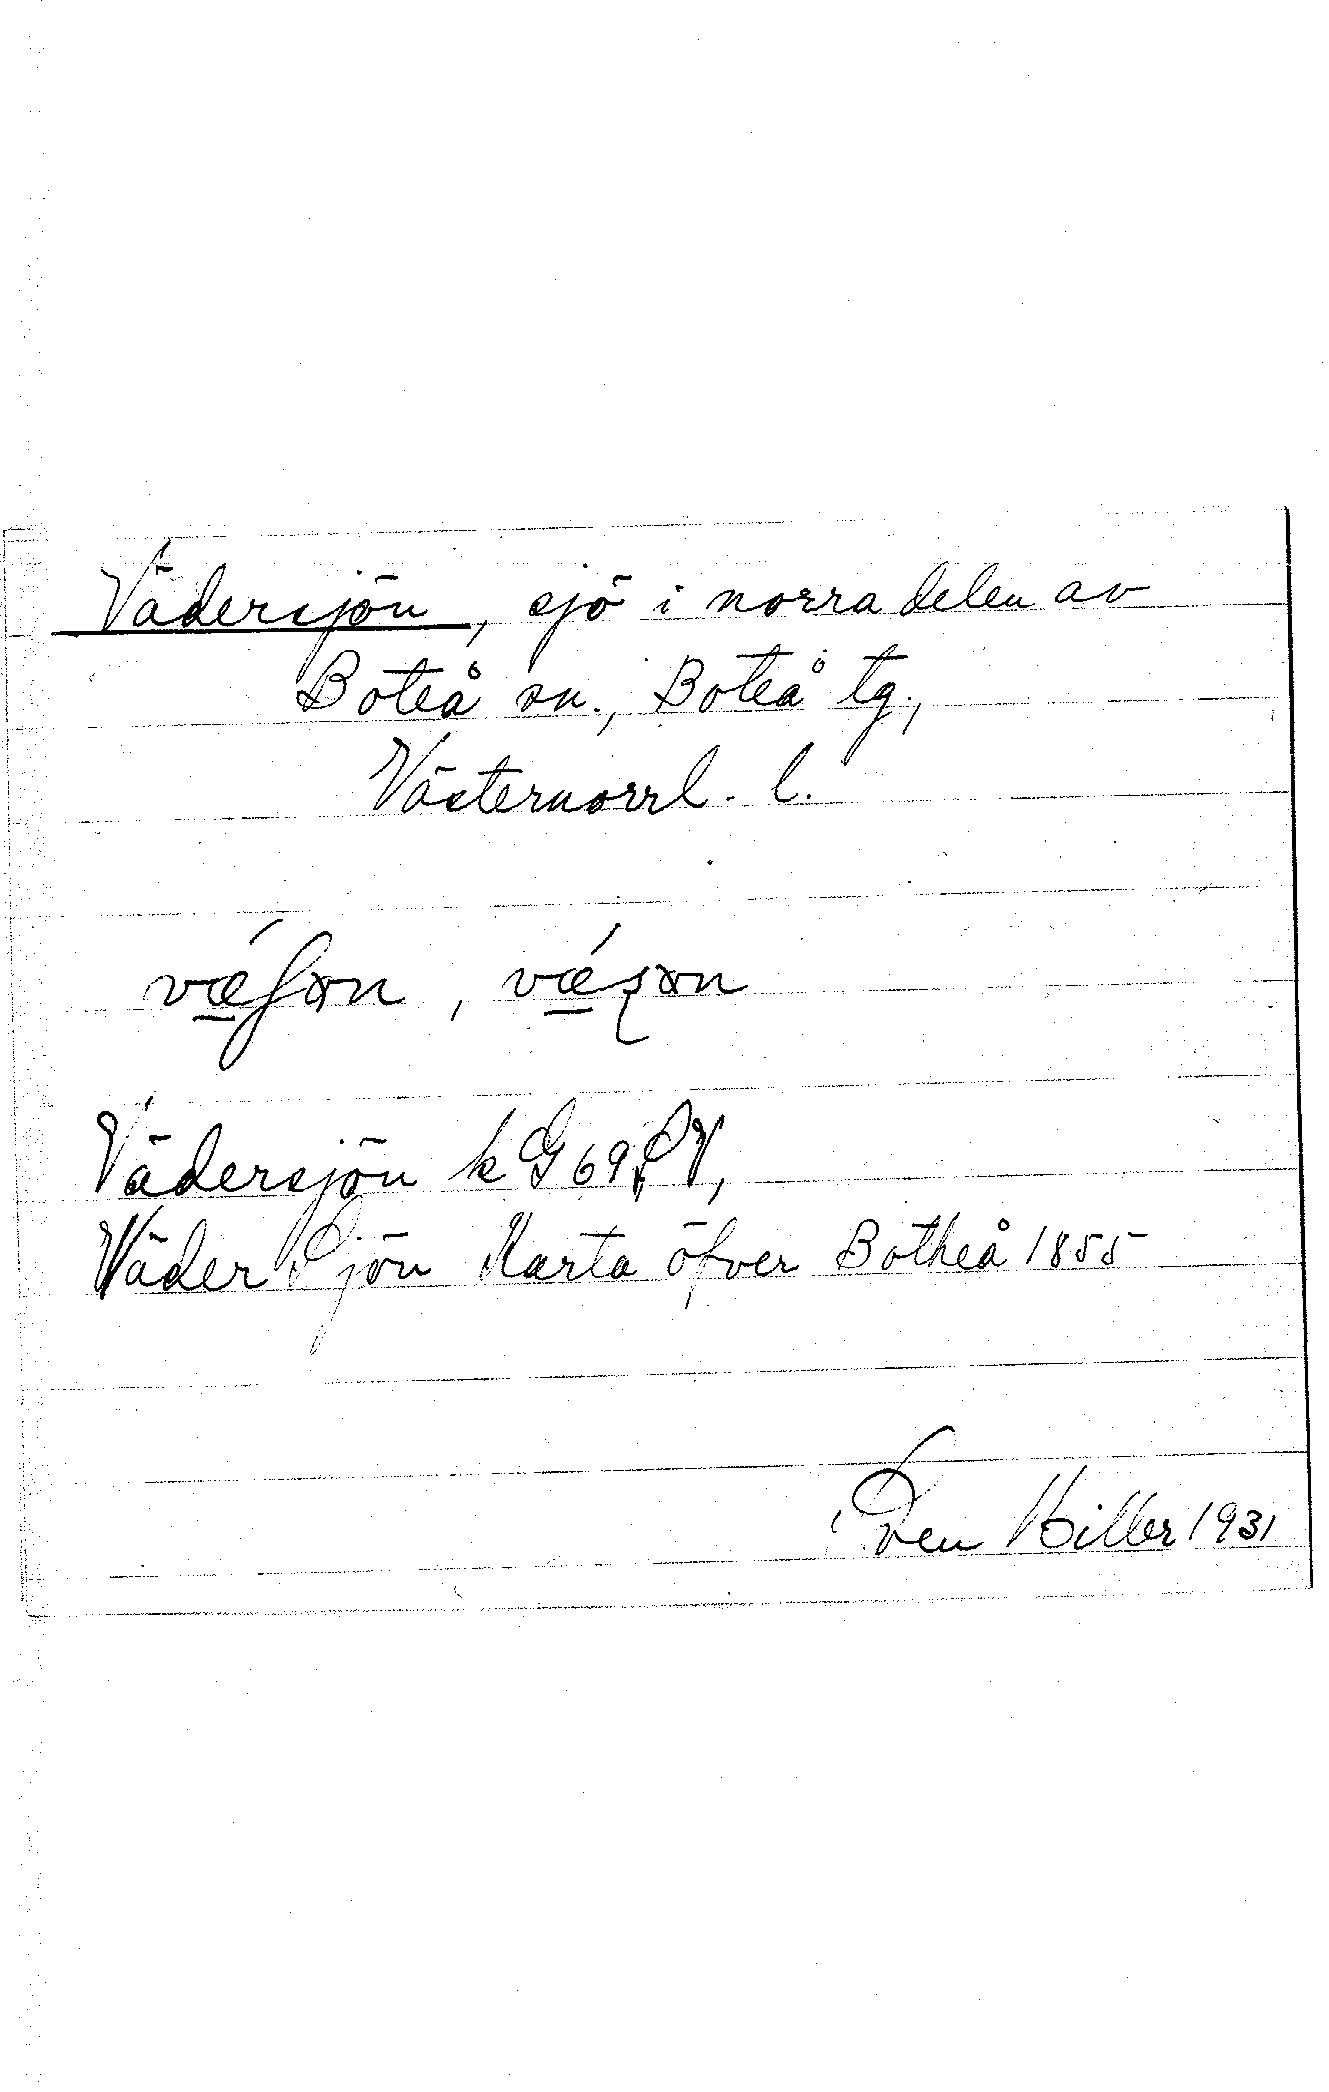 Vädersjön, sjö i norra delen av
Boteå sn., Boteå tg.,
Västernorrl. l.
Vädersjön k G 69 SV,
Wäder Sjön Karta öfver Botheå 1855
Sven Hiller 1931